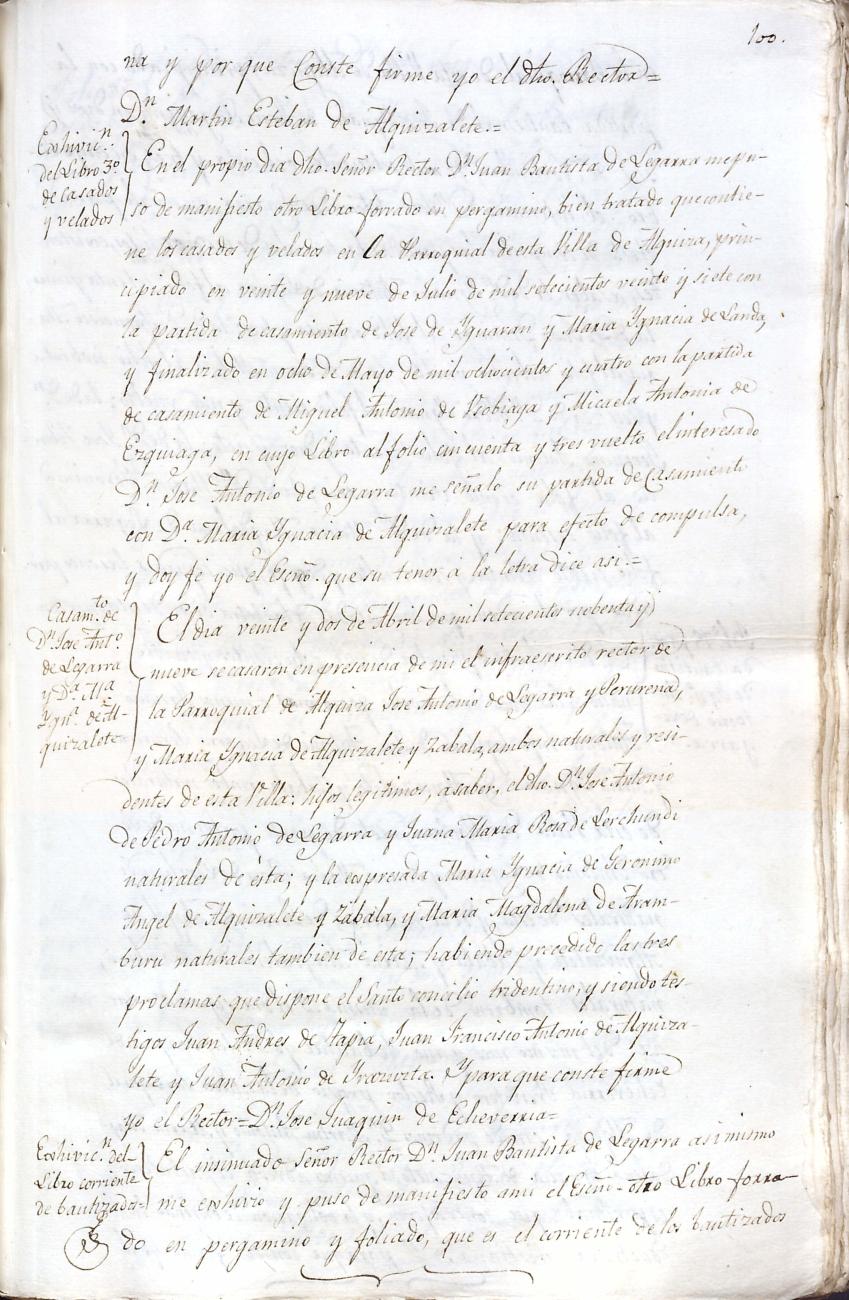 100.
na y por que Conste firme yo el dho. Rector=
D.n Martin Esteban de Alquizalete.=
Exhivic.n
del Libro 3.o
de casados
y velados
En el propio dia dho. Señor Rector D.n Juan Bautista de Legarra me pu-
so de manifiesto otro Libro forrado en pergamino, bien tratado que contie-
ne los casados y velados en la Parroquial de esta Villa de Alquiza, prin-
cipiado en veinte y nueve de Julio de mil setecientos veinte y siete con
la partida de casamiento de Jose de Yguaran y Maria Ygnacia de Landa,
y finalizado en ocho de Mayo de mil ochocientos y cuatro con la partida
de casamiento de Miguel Antonio de Usobiaga y Micaela Antonia de
Ezquiaga, en cuyo Libro al folio cincuenta y tres vuelto el interesado
D.n Jose Antonio de Legarra me señalo su partida de Casamiento
con D.a Maria Ygnacia de Alquizalete para efecto de compulsa,
y doy fe yo el Escño. que su tenor á la letra dice asi.=
Casam.to de
D.n Jose Ant.o
de Legarra
y D.a M.a
Ygn.a de Al-
quizalete
El dia veinte y dos de Abril de mil setecientos nobenta y
nueve se casaron en presencia de mi el infraescrito rector de
la Parroquial de Alquiza Jose Antonio de Legarra y Perurena,
y Maria Ygnacia de Alquizalete y Zabala, ambos naturales y resi-
dentes de esta Villa: hijos legitimos, á saber, el dho. D.n Jose Antonio
de Pedro Antonio de Legarra y Juana Maria Rosa de Lerchundi
naturales de ésta; y la expresada Maria Ygnacia de Geronimo
Angel de Alquizalete y Zabala, y Maria Magdalena de Aram-
buru naturales tambien de esta; habiendo precedido las tres
proclamas que dispone el Santo concilio tridentino; y siendo tes-
tigos Juan Andres de Tapia, Juan Francisco Antonio de Alquiza-
lete y Juan Antonio de Yrazuzta. Y para que conste firme
yo el Rector=D.n Jose Juaquin de Echeverria=
Exhivic.n del
Libro corriente
de bautizados=
El insinuado Señor Rector D.n Juan Bautista de Legarra asimismo
me exhivio y puso de manifiesto a mi el Escñ.o otro Libro forra-
do en pergamino y foliado, que es el corriente de los bautizados